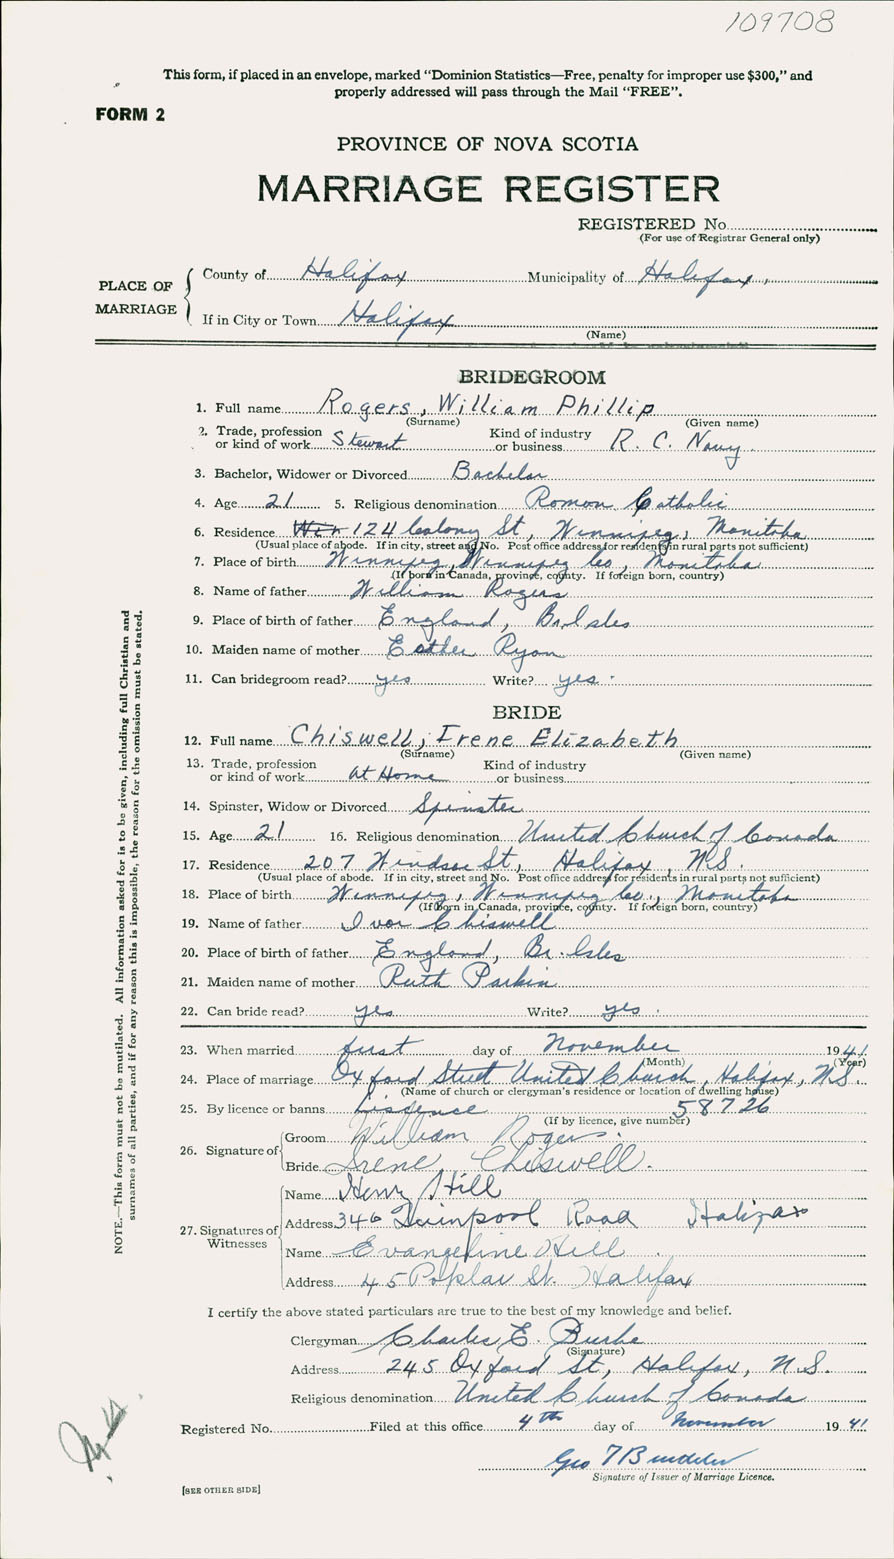 109708
This form, if placed in an envelope, marked “Dominion Statistics—Free, penalty for improper use $300,” and
properly addressed will pass through the Mail “FREE”.
FORM 2
PROVINCE OF NOVA SCOTIA
MARRIAGE REGISTER
REGISTERED No.
(For use of Registrar General only)
PLACE OF MARRIAGE
County of Halifax Municipality of Halifax,
If in City or Town Halifax
(Name)
BRIDEGROOM
1. Full name Rogers, William Phillip
(Surname) (Given name)
2. Trade, profession or kind of work Stewart Kind of industry or business R. C. Navy
3. Bachelor, Widower or Divorced Bachelor
4. Age 21 5. Religious denomination Roman Catholic
6. Residence Win 124 Colony St, Winnipeg, Manitoba
(Usual place of abode. If in city, street and No. Post office address for residents in rural parts not sufficient)
7. Place of birth Winnipeg, Winnipeg Co, Manitoba
(If born in Canada, province, county. If foreign born, country)
8. Name of father William Rogers
9. Place of birth of father England, Br. Isles
10. Maiden name of mother Esther Ryan
11. Can bridegroom read? yes Write? yes.
BRIDE
12. Full name Chiswell, Irene Elizabeth
(Surname) (Given name)
13. Trade, profession or kind of work At Home Kind of industry or business
14. Spinster, Widow or Divorced Spinster
15. Age 21 16. Religious denomination United Church of Canada
17. Residence 207 Windsor St, Halifax, N.S.
(Usual place of abode. If in city, street and No. Post office address for residents in rural parts not sufficient)
18. Place of birth Winnipeg, Winnipeg Co., Manitoba
(If Born in Canada, province, county. If foreign born, country)
19. Name of father Ivor Chiswell
20. Place of birth of father England, Br. Isles
21. Maiden name of mother Ruth Parkin
22. Can bride read? yes Write? yes.
23. When married first day of November 1941
(Month) (Year)
24. Place of marriage Oxford Street United Church, Halifax, N.S.
(Name of church or clergyman's residence or location of dwelling house)
25. By licence or banns Liscence 58726
(If by licence, give number)
26. Signature of
Groom William Rogers.
Bride Irene Chiswell.
27. Signatures of Witnesses
Name Henry Hill
Address 346 Quinpool Road Halifax
Name Evangeline Hill
Address 45 Poplar St. Halifax
I certify the above stated particulars are true to the best of my knowledge and belief.
Clergyman Charles E. Burke
(Signature)
Address 245 Oxford St, Halifax, N.S.
Religious denomination United Church of Canada
Registered No. Filed at this office 4th day of November 1941
Geo T
Signature of Issuer of Marriage Licence.
[SEE OTHER SIDE]
NOTE.—This form must not be mutilated. All information asked for is to be given, including full Christian and
surnames of all parties, and if for any reason this is impossible, the reason for the omission must be stated.